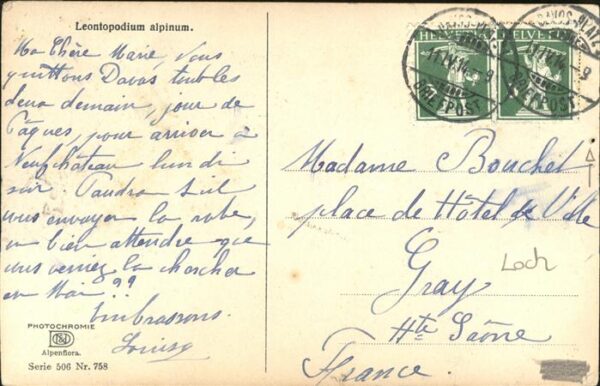 Leontopodium alpinum.
Ma Chère Marie, Nous
quittons Davos tout les
deux demain, jour de
Pâques, pour arriver à
Neufchateau lundi
soir. Faudra-t-il
vous envoyer la robe,
ou bien attendre que
vous veniez la chercher
en Mai ??
Embrassons.
Louisy
PHOTOCHROMIE
Alpenflora.
Serie 506 Nr. 758
HELVETIA HELVETIA
DAVOS-PLATZ
11.IV.14.-9
BRIEFPOST
DAVOS-PLATZ
11.IV.14.-9
BRIEFPOST
Madame Bouchet
place de Hôtel de Ville
Loch
Gray
Hte Saône
France.